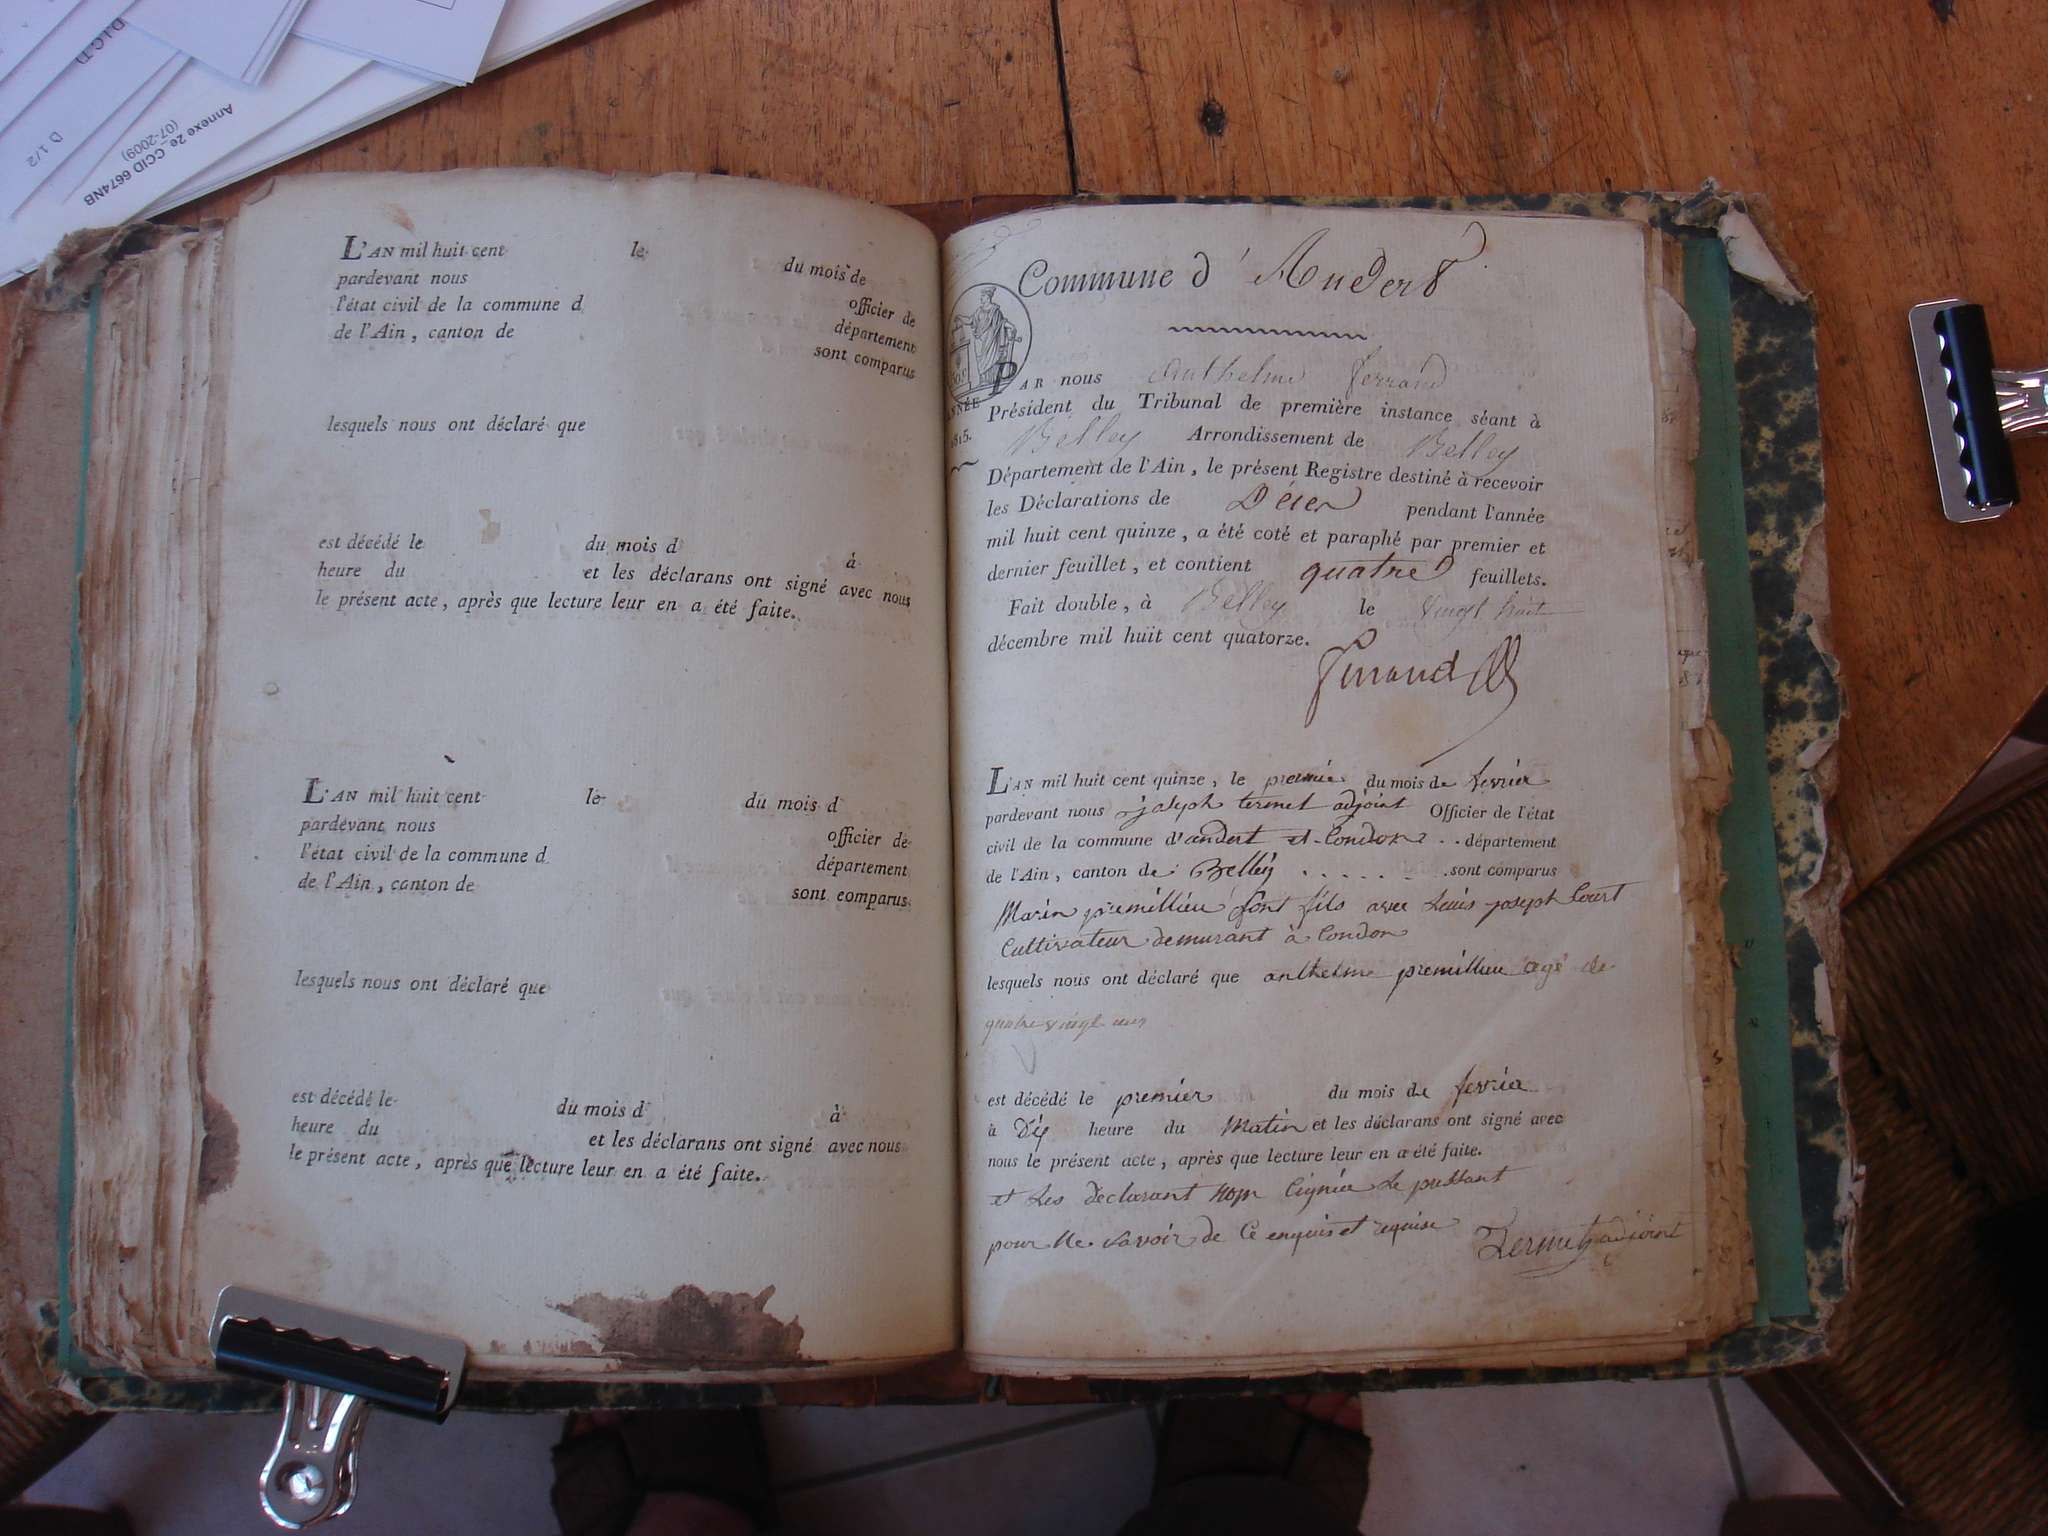 D.I.C.T)
D 1/2
Annexe 2e_CCID 6674NB
(07-2009)
L'AN mil huit cent le du mois de
pardevant nous officier de
l'état civil de la commune d département
de l'Ain, canton de sont comparus
lesquels nous ont déclaré que
est décédé le du mois d à
heure du et les déclarans ont signé avec nous
le présent acte, après que lecture leur en a été faite.
L'AN mil huit cent le du mois d
pardevant nous officier de
l'état civil de la commune d département
de l'Ain, canton de sont comparus
lesquels nous ont déclaré que
est décédé le du mois d à
heure du et les déclarans ont signé avec nous
le présent acte, après que lecture leur en a été faite.
Commune d'Andert
ANNÉE
1815.
PAR nous Anthelme Ferrand
Président du Tribunal de première instance séant à
Belley Arrondissement de Belley
Département de l'Ain, le présent Registre destiné à recevoir
les Déclarations de Décès pendant l'année
mil huit cent quinze, a été coté et paraphé par premier et
dernier feuillet, et contient quatre feuillets.
Fait double, à Belley le vingt huit
décembre mil huit cent quatorze.
Ferrand
L'AN mil huit cent quinze, le premie du mois de fevrier
pardevant nous joseph termet adjoint Officier de l'état
civil de la commune d'andert et Condon . . département
de l'Ain, canton de Belley . . . . . . . sont comparus
Marin premillieu font fils avec Louis joseph Court
Cultivateur demurant à Condon
lesquels nous ont déclaré que anthelme premillieu agé de
quatre vingt uns
est décédé le premier du mois de fevrier
à Dix heure du Matin et les déclarans ont signé avec
nous le présent acte, après que lecture leur en a été faite.
et Les déclarant non Cignée de
pour Ne savoir de Ce enquis et requise Termet adjoint